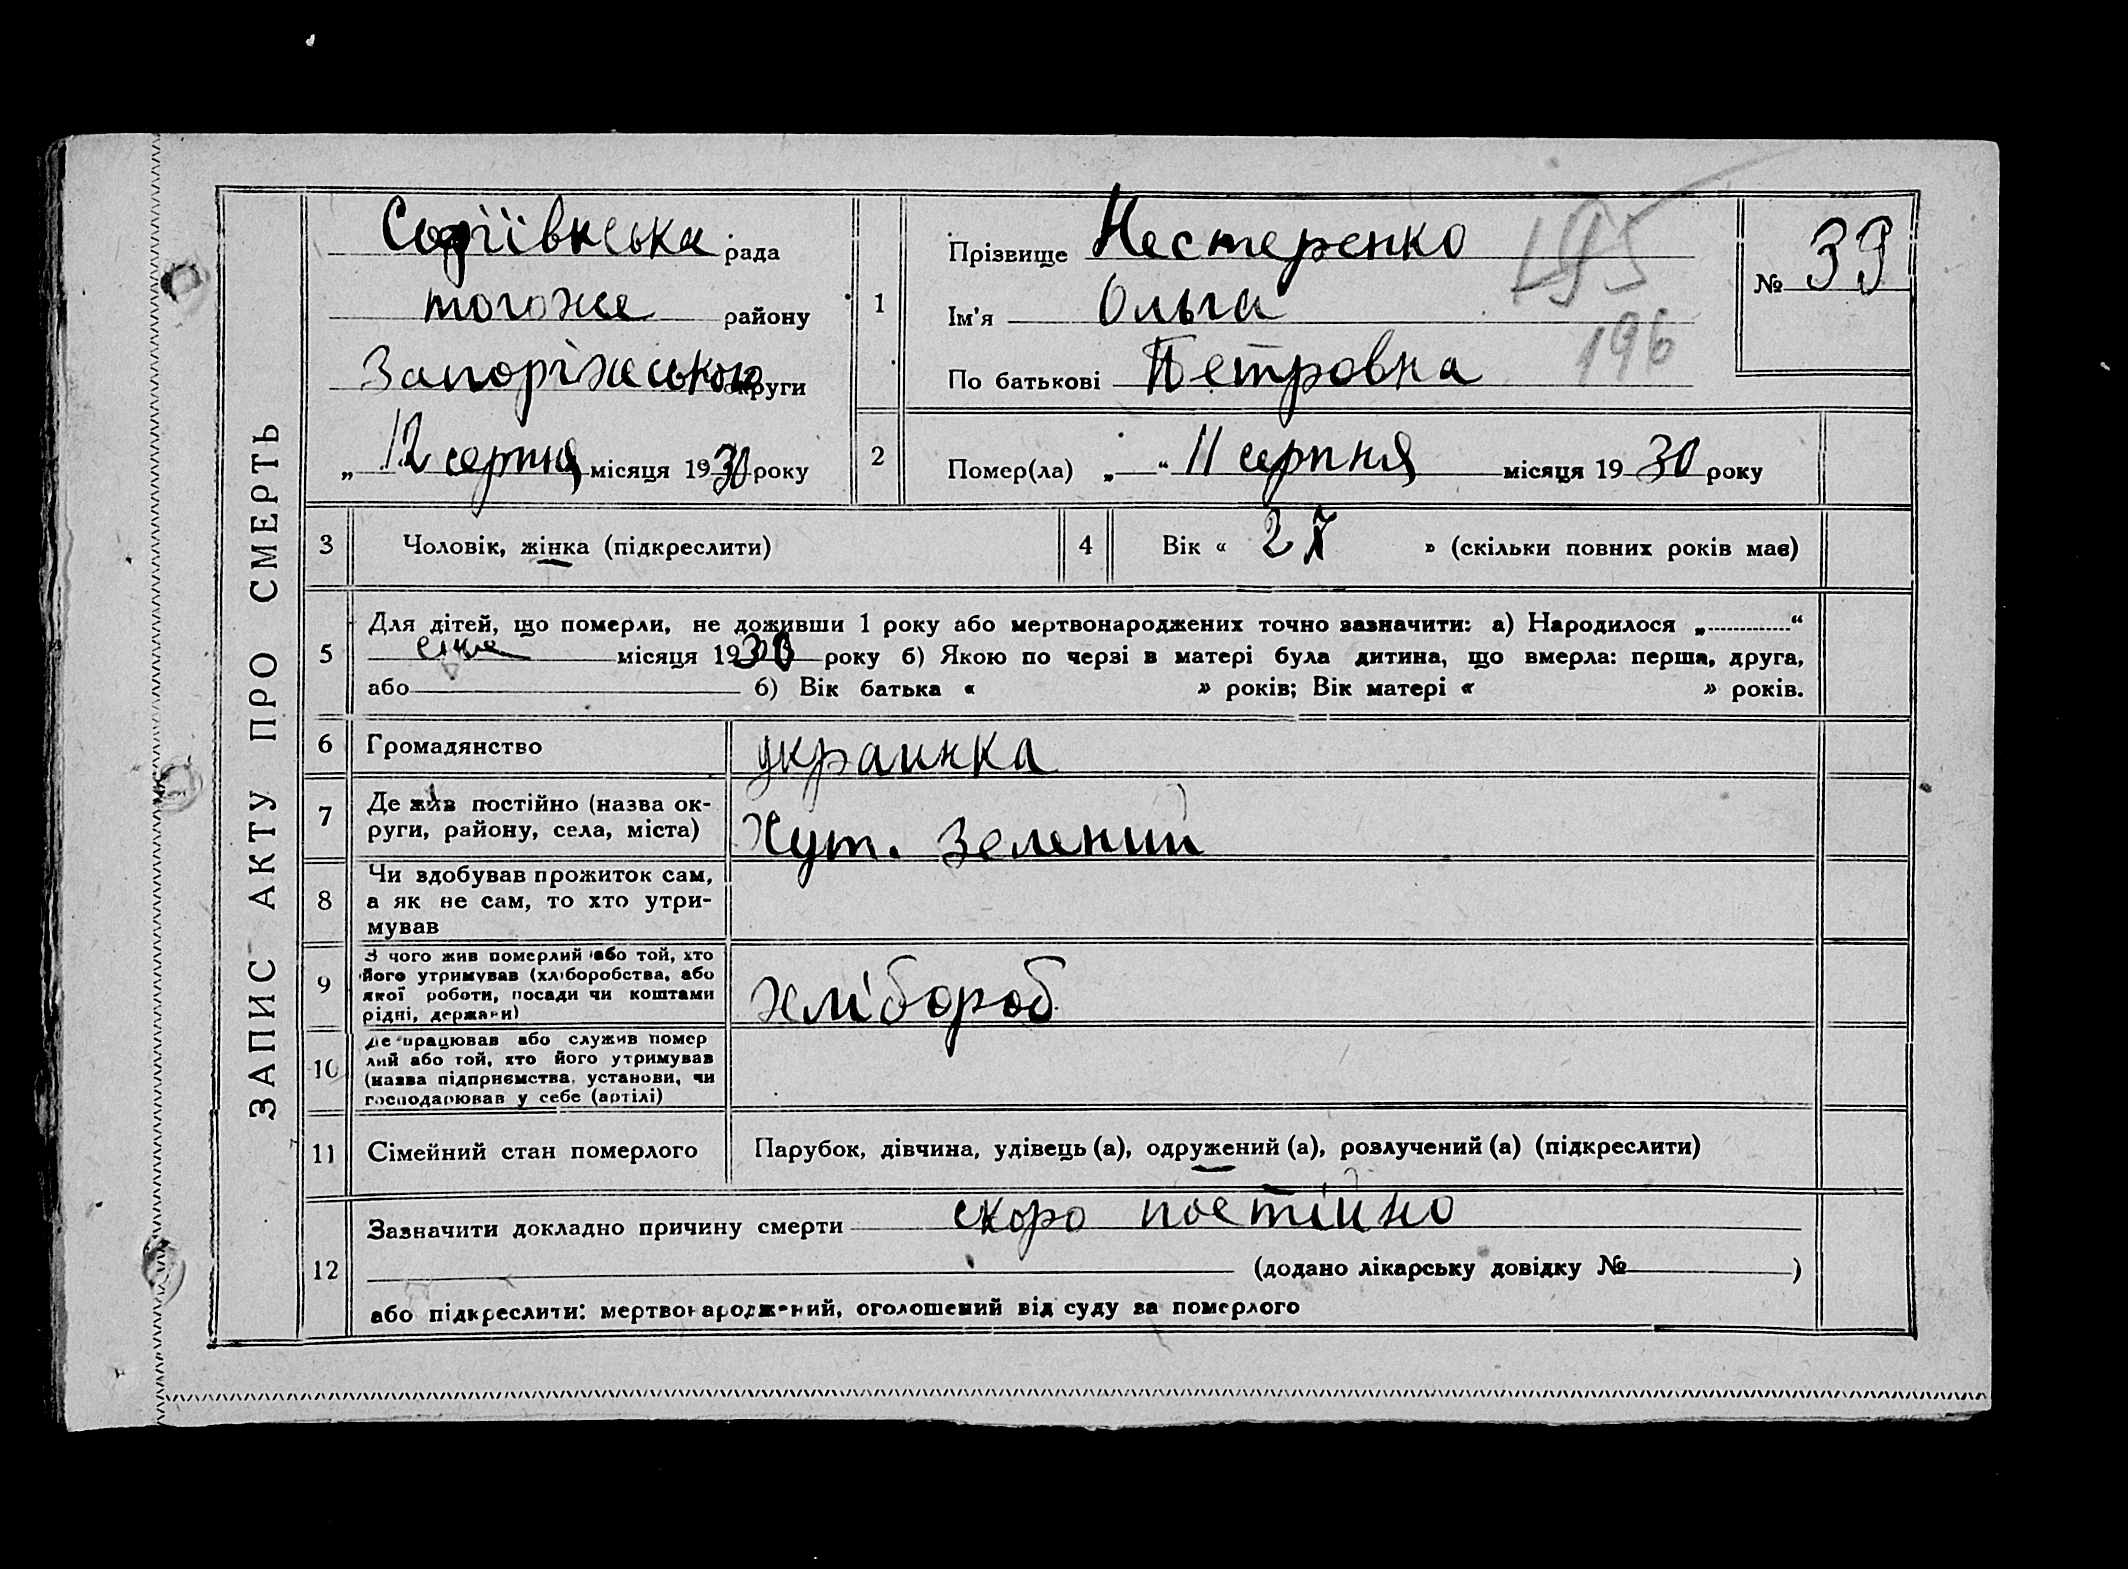 ЗАПИС АКТУ ПРО СМЕРТЬ
Софіївська рада
тогоже району
Запоріжською округи
„ 12 серпня місяця 1930 року
1
Прізвище Нестеренко
Ім'я Ольга
По батькові Петровна
195
196
№ 39
2
Помер(ла) „ “ 11 серпня місяця 1930 року
3 Чоловік, жінка (підкреслити)
4 Вік « 27 » (скільки повних років має)
5
Для дітей, що померли, не доживши 1 року або мертвонароджених точно зазначити: а) Народилося „ “
місяця 1930 року б) Якою по черзі в матері була дитина, що вмерла: перша, друга,
або б) Вік батька « » років; Вік матері « » років.
6 Громадянство украинка
7 Де жив постійно (назва ок-
руги, району, села, міста) Хут. Зелений
8
Чи здобував прожиток сам,
а як не сам, то хто утри-
мував
9
З чого жив померлий або той, хто
його утримував (хліборобства, або
якої роботи, посади чи коштами
рідні, держави) хлібороб
10
Де працював або служив помер
лий або той, хто його утримував
(назва підприємства, установи, чи
господарював у себе (артілі)
11 Сімейний стан померлого Парубок, дівчина, удівець (а), одружений (а), розлучений (а) (підкреслити)
12
Зазначити докладно причину смерти скоро постійно
(додано лікарську довідку № )
або підкреслити: мертвонароджений, оголошений від суду за померлого